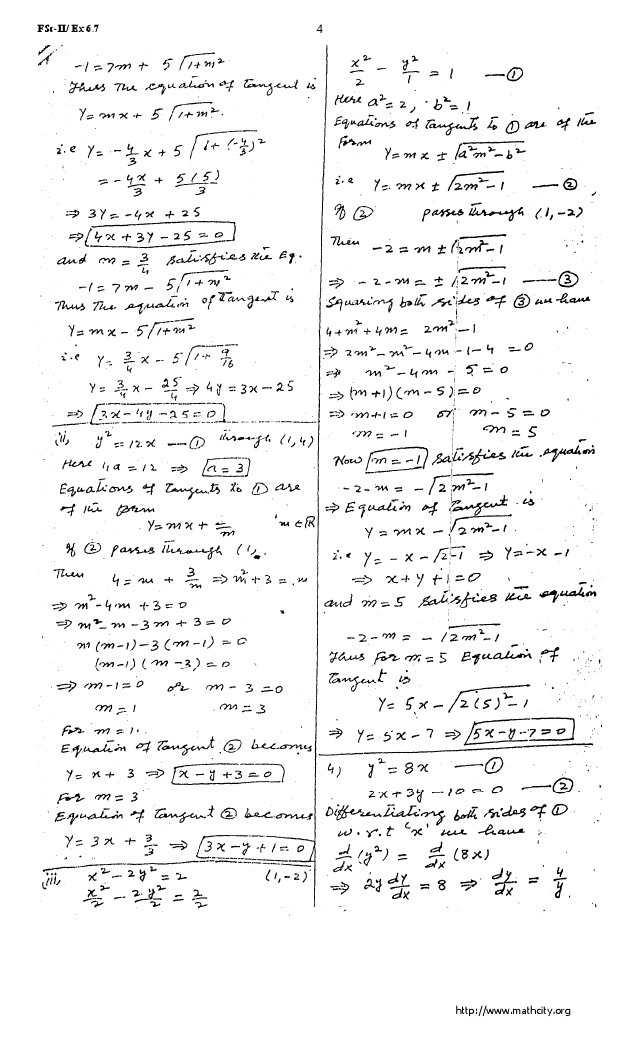 FSc-II/ Ex 6.7
4
-1 = 7m + 5√1+m²
Thus The equation of Tangent is
Y = mx + 5√1+m².
i.e Y = -4/3 x + 5√1+(-4/3)²
= -4x/3 + 5(5)/3
⇒ 3Y = -4x + 25
⇒ 4x + 3Y - 25 = 0
and m = 3/4 Satisfies the Eq.
-1 = 7m - 5√1+m²
Thus The equation of Tangent is
Y = mx - 5√1+m²
i.e Y = 3/4 x - 5√1+9/16
Y = 3/4 x - 25/4 ⇒ 4Y = 3x - 25
⇒ 3x - 4y - 25 = 0
ii, y² = 12x — ① through (1,4)
Here 4a = 12 ⇒ a = 3
Equations of Tangents to ① are
of the form
Y = mx + a/m m ∈ R
If ② passes through (1,
Then 4 = m + 3/m ⇒ m² + 3 = m
⇒ m² - 4m + 3 = 0
⇒ m² - m - 3m + 3 = 0
m(m-1) - 3(m-1) = 0
(m-1)(m-3) = 0
⇒ m-1 = 0 or m-3 = 0
m = 1 m = 3
For m = 1.
Equation of Tangent ② becomes
Y = x + 3 ⇒ x - y + 3 = 0
For m = 3
Equation of Tangent ② becomes
Y = 3x + 3/3 ⇒ 3x - y + 1 = 0
iii, x² - 2y² = 2 (1,-2)
x²/2 - 2y²/2 = 2/2
x²/2 - y²/1 = 1 — ①
Here a² = 2, b² = 1
Equations of Tangents to ① are of the
Form
Y = mx ± √a²m² - b²
i.e Y = mx ± √2m² - 1 — ②
If ② passes through (1,-2)
Then -2 = m ± √2m² - 1
⇒ -2 - m = ± √2m² - 1 — ③
Squaring both sides of ③ we have
4 + m² + 4m = 2m² - 1
⇒ 2m² - m² - 4m - 1 - 4 = 0
⇒ m² - 4m - 5 = 0
⇒ (m+1)(m-5) = 0
⇒ m+1 = 0 or m - 5 = 0
m = -1 m = 5
Now m = -1 Satisfies the equation
-2 - m = -√2m² - 1
⇒ Equation of Tangent is
Y = mx - √2m² - 1
i.e Y = -x - √2-1 ⇒ Y = -x - 1
⇒ x + y + 1 = 0
and m = 5 Satisfies the equation
-2 - m = -√2m² - 1
Thus For m = 5 Equation of
Tangent is
Y = 5x - √2(5)² - 1
⇒ Y = 5x - 7 ⇒ 5x - y - 7 = 0
4) y² = 8x — ①
2x + 3y - 10 = 0 — ②
Differentiating both sides of ①
w.r.t 'x' we have
d/dx (y²) = d/dx (8x)
⇒ 2y dy/dx = 8 ⇒ dy/dx = 4/y
http://www.mathcity.org